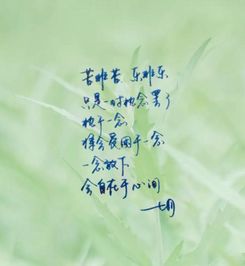 苦非苦、乐非乐
只是一时执念罢了
执于一念
将会受困于一念
一念放下
会自在于心间
七月